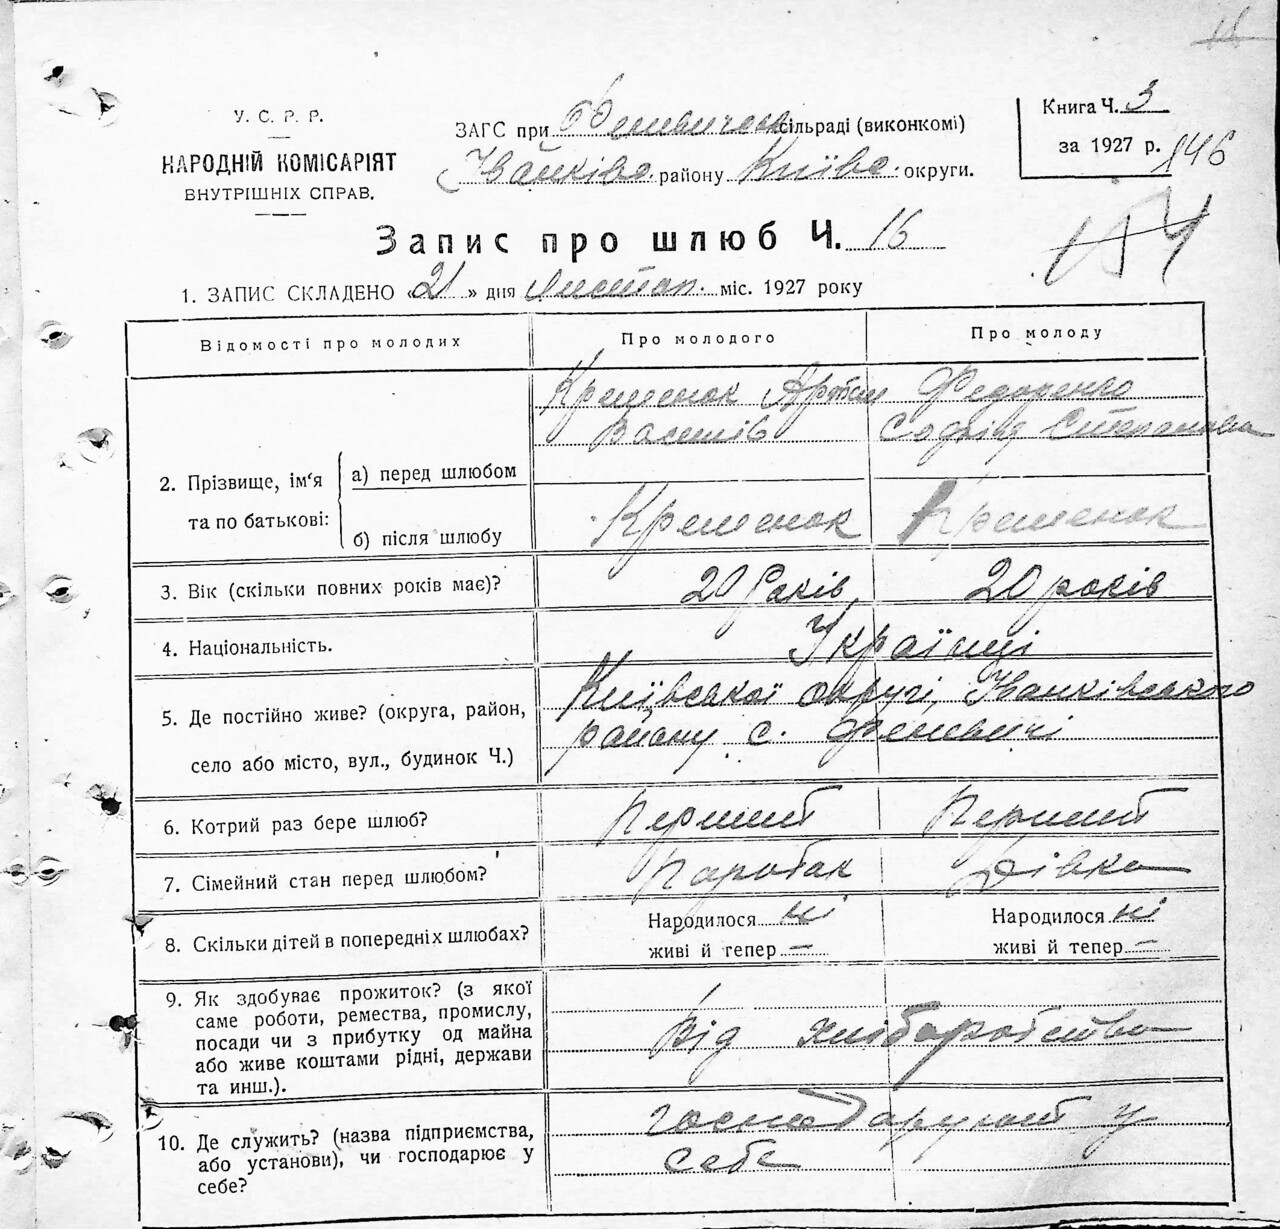 У. С. Р. Р.
НАРОДНІЙ КОМІСАРІЯТ
ВНУТРІШНІХ СПРАВ.
ЗАГС при Феневичськ сільраді (виконкомі)
Іванківс. району Київс. округи.
Книга Ч. 3
за 1927 р.
146
154
Запис про шлюб Ч. 16
1. ЗАПИС СКЛАДЕНО «21» дня Листоп. міс. 1927 року
Відомості про молодих
Про молодого
Про молоду
2. Прізвище, ім'я та по батькові:
а) перед шлюбом
Кременок Артем
Василів
Федоренко
Софія Степанова
б) після шлюбу
Кременок
Кременок
3. Вік (скільки повних років має)?
20 років
20 років
4. Національність.
Українці
5. Де постійно живе? (округа, район,
село або місто, вул., будинок Ч.)
Київської округі, Іванківського
району с. Феневичі
6. Котрий раз бере шлюб?
Перший
Перший
7. Сімейний стан перед шлюбом?
Паробак
Дівка
8. Скільки дітей в попередніх шлюбах?
Народилося ні
живі й тепер —
Народилося ні
живі й тепер —
9. Як здобуває прожиток? (з якої
саме роботи, ремества, промислу,
посади чи з прибутку од майна
або живе коштами рідні, держави
та инш.).
Від хліборобства
10. Де служить? (назва підприємства,
або установи), чи господарює у
себе?
господарують у
себе